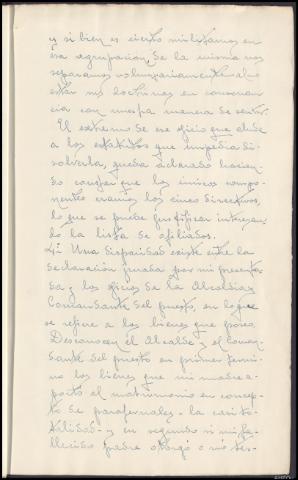 y si bien es cierto militamos en
esa agrupación, de la misma nos
separamos voluntariamente al no
estar sus doctrinas en consonan-
cia con nuestra manera de sentir.
El extremo de ese oficio que alude
a los estatutos que impedia di-
solverla, queda aclarado hacien-
do constar que los únicos compo-
nentes eramos los cinco directivos,
lo que se puede justificar interesan-
do la lista de afiliados.
4ª Una disparidad existe entre la
declaración jurada por mi presenta-
da y los oficios de la Alcaldía y
Comandante del puesto, en lo que
se refiere a los bienes que poseo.
Desconocen el Alcalde y el Coman-
dante del puesto en primer termi-
no los bienes que mi madre a-
portó al matrimonio en concep-
to de parafernales - la casi to-
talidad - y en segundo si mi fa-
llecido padre otorgó o no tes-